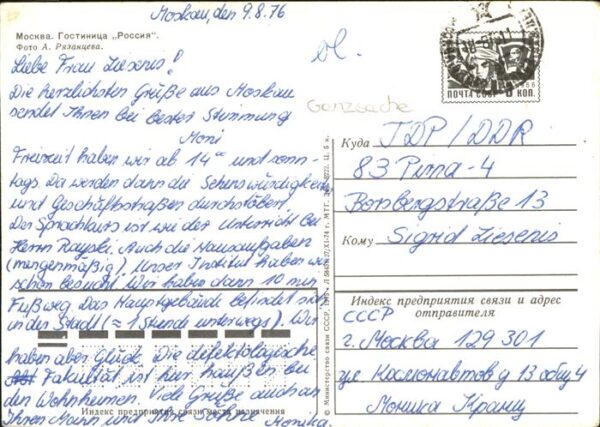 Moskau, den 9.8.76
Москва. Гостиница „Россия".
Фото А. Рязанцева.
Liebe Frau Ziesenis!
Die herzlichsten Grüße aus Moskau
sendet Ihnen bei bester Stimmung
Moni
Freizeit haben wir ab 14⁰⁰ und sonn-
tags. Da werden dann die Sehenswürdigkeiten
und Geschäftsstraßen durchstöbert.
Der Sprachkurs ist wie der Unterricht bei
Herrn Rayski. Auch die Hausaufgaben
(mengenmäßig). Unser Institut haben wir
schon besucht. Wir haben dann 10 min
Fußweg. Das Hauptgebäude befindet sich
in der Stadt (≈ 1 Stunde unterwegs). Wir
haben aber Glück. Die defektologische
Fakultät ist hier haußen bei
den Wohnheimen. Viele Grüße auch an
Ihren Mann und Ihre Söhne
Monika.
Индекс предприятия связи места назначения
© Министерство связи СССР.
Ganzsache
ПОЧТА СССР КОП.
Куда TDP/DDR
83 Pirna-4
Borsbergstraße 13
Кому Sigrid Ziesenis
Индекс предприятия связи и адрес
отправителя
СССР
г. Москва 129 301
ул. Космонавтов д 13 общ 4
Моника Кранц